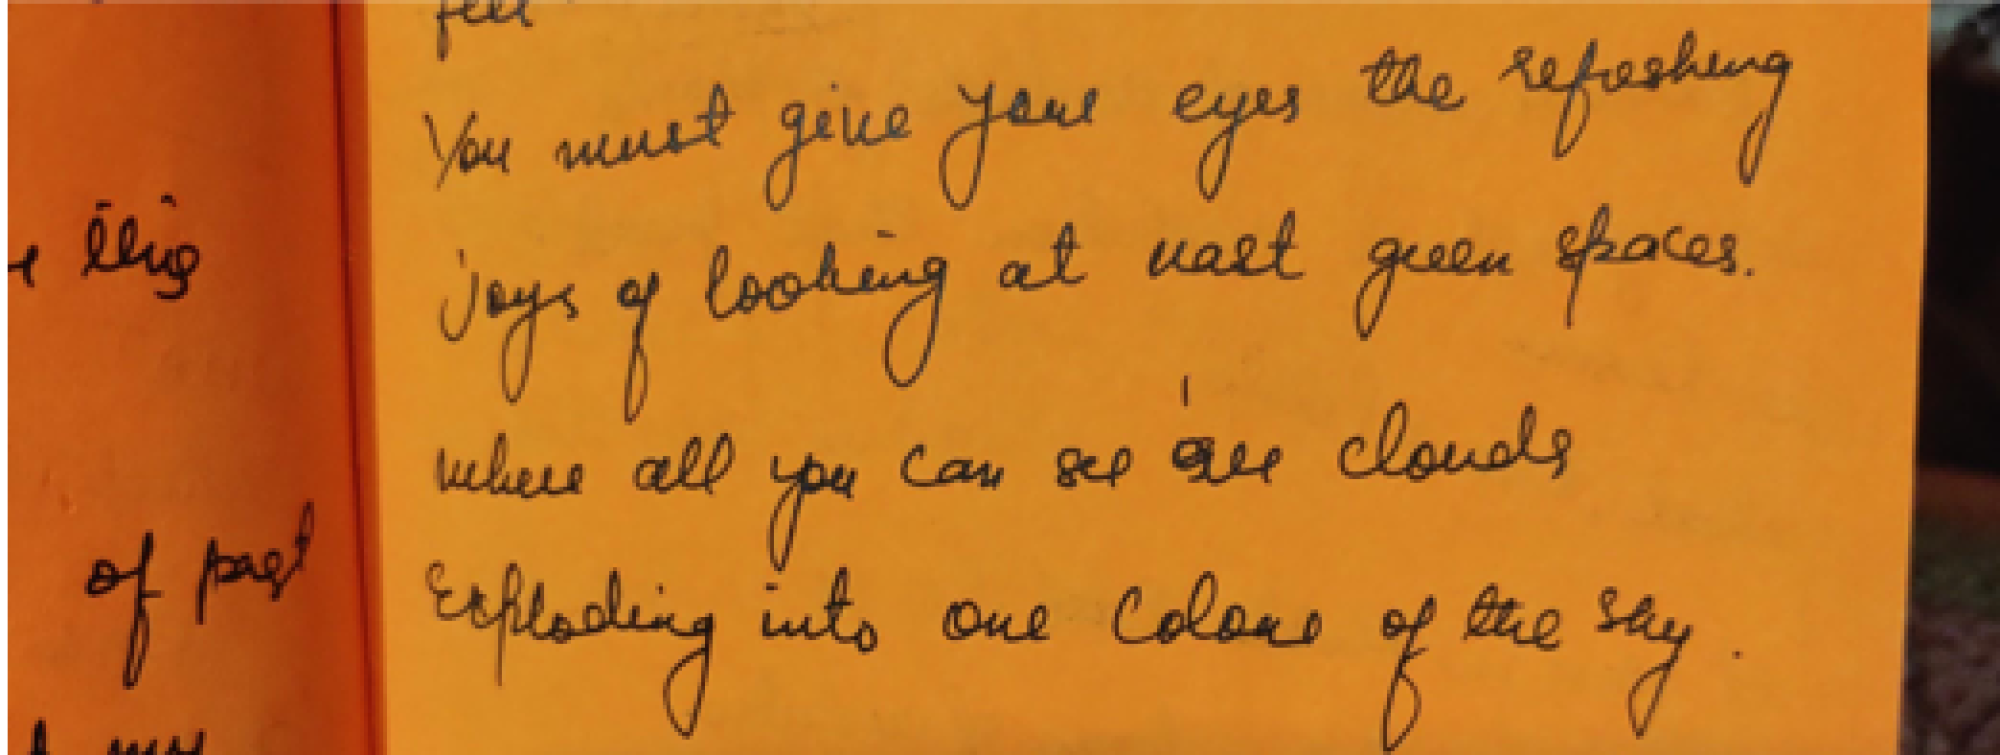 feel
You must give your eyes the refreshing
joys of looking at vast green spaces.
where all you can see are clouds
Exploding into one colour of the sky.
this
of past
my